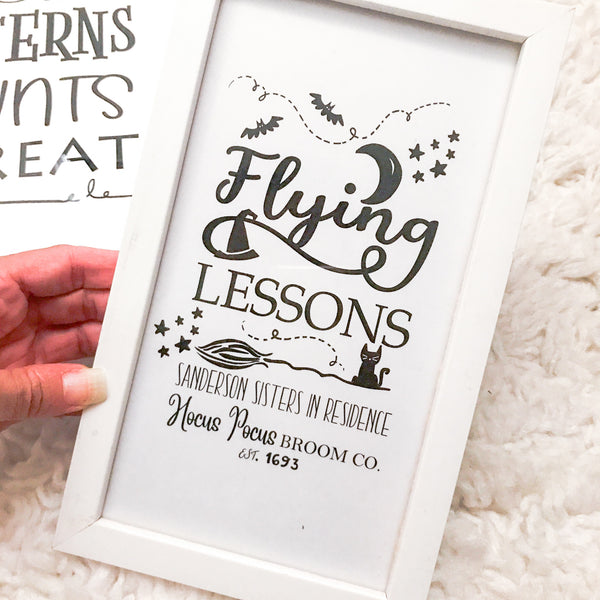 TERNS
UNTS
REAT
Flying
LESSONS
SANDERSON SISTERS IN RESIDENCE
Hocus Pocus BROOM CO.
EST. 1693